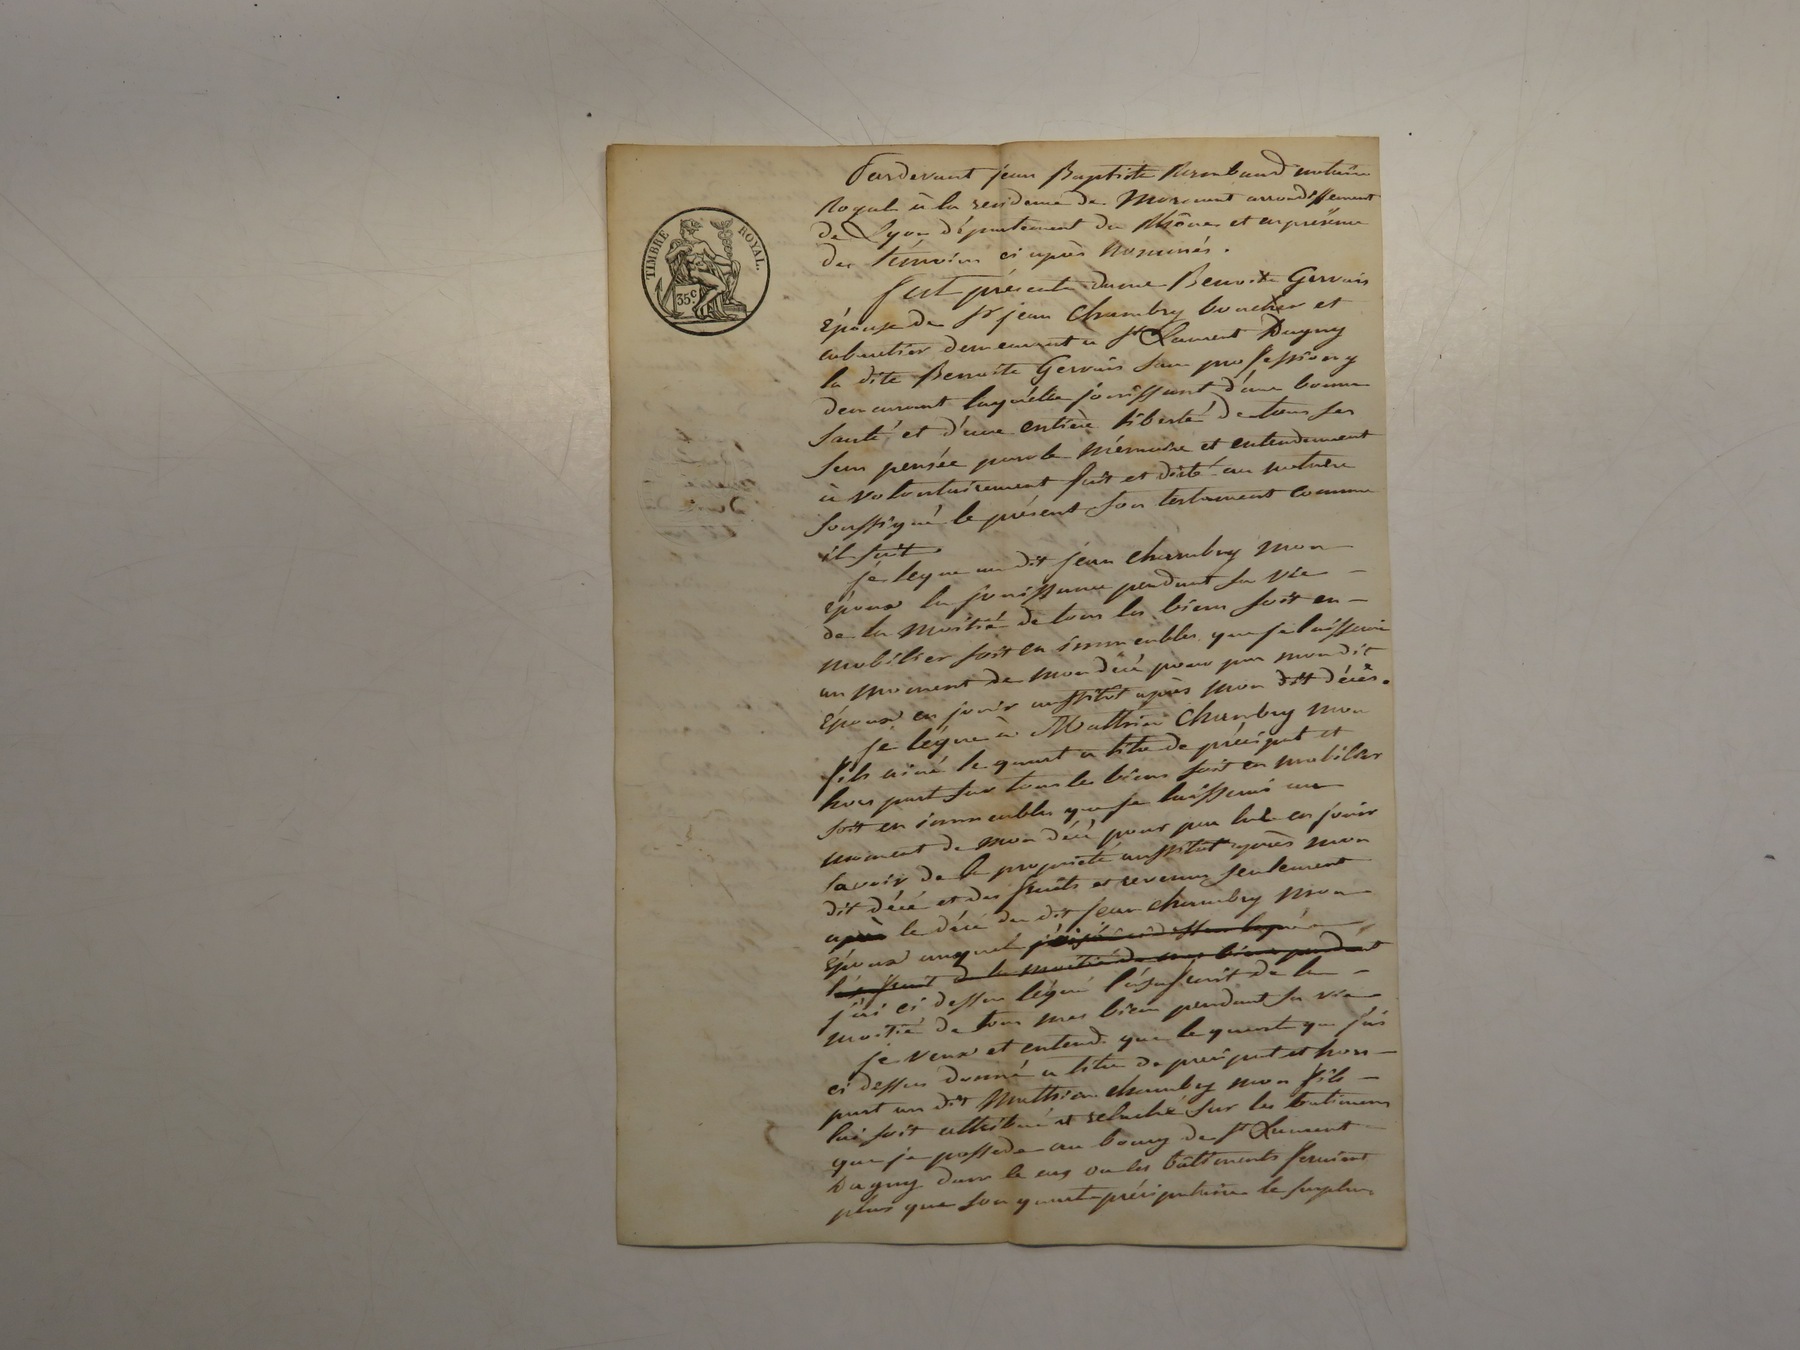 TIMBRE ROYAL.
35c
Pardevant jean Baptiste Rambaud notaire
Royal à la residence de Mornant arrondissement
de Lyon département du Rhône et en présence
des témoins ci après nommés.
fut présente dame Benoite Gervais
Epouse de Sr jean Chambry boucher et
cabaretier demeurant a St Laurent Dagny
la dite Benoite Gervais sans profession y
demeurant laquelle jouissant d'une bonne
santé, et d'une entière liberté de tous ses
sens pensée parole mémoire et entendement
à volontairement fait et dicté au notaire
soussigné le présent son testament comme
il suit.
je legue au dit jean chambry mon
époux la jouissance pendant sa vie
de la moitié de tous les biens soit en
mobilier soit en immeubles que je laisserai
au moment de mon décé pour par mon dit
Epoux en jouir aussitot après mon dit décès.
je légue à Mathieu Chambry mon
fils ainé le quart a titre de préciput et
hors part sur tous les biens soit en mobilier
soit en immeubles que je laisserai au
moment de mon décé, pour par lui en jouir
savoir de la propriété aussitot après mon
dit décé et des fruits et revenus seulement
après le décé du dit jean chambry mon
Epoux auquel j'ai ci dessus legué
l'usufruit de la moitié de mes biens pendant
j'ai ci dessus légué l'usufruit de la
moitié de tous mes bien pendant sa vie
je veux et entend que le quart que j'ai
ci dessus donné a titre de preciput et hors
part au dit Mathieu chambry mon fils
lui soit attribué et relaché sur les batimens
que je possede au bourg de St Laurent
Dagny dans le cas ou les bâtiments seraient
plus que son quart préciputaire le surplus